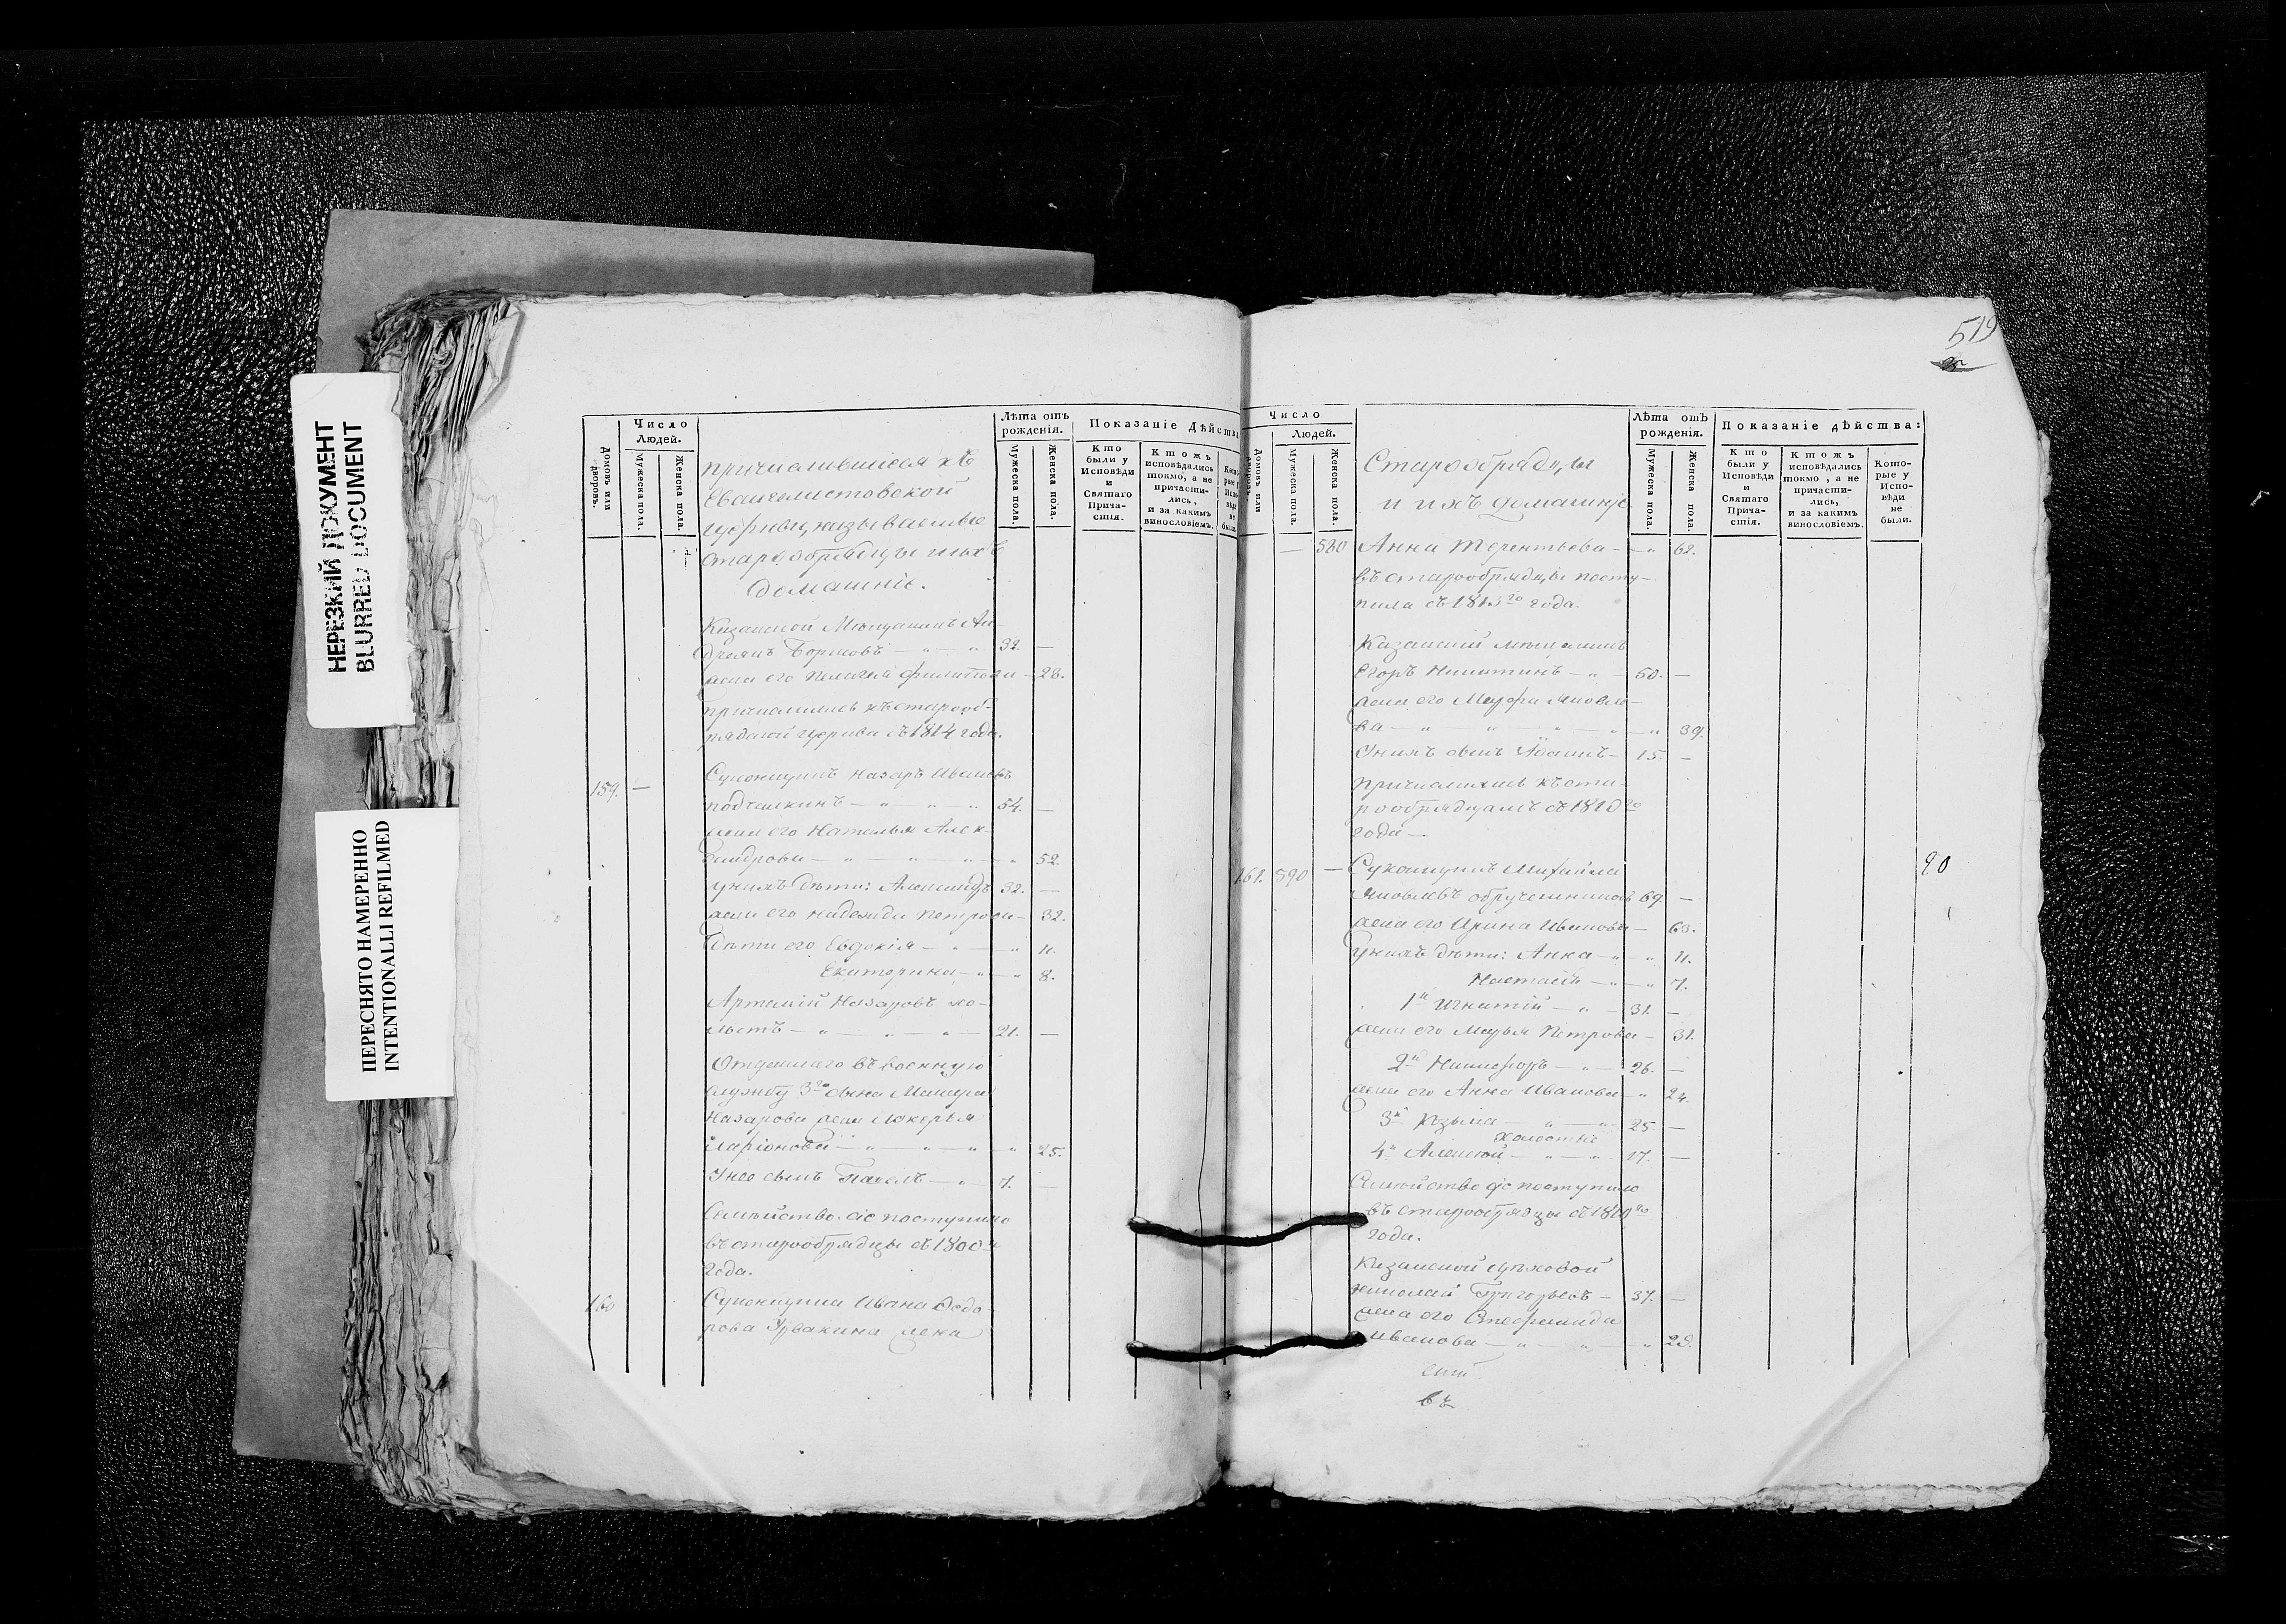 НЕРЕЗКИЙ ДОКУМЕНТ
BLURRED DOCUMENT
ПЕРЕСНЯТО НАМЕРЕННО
INTENTIONALLI REFILMED
Домовъ или дворовъ.
Число
Людей.
Мужеска пола.
Женска пола.
Лѣта отъ
рожденія.
Мужеска пола.
Женска пола.
Показаніе Дѣйства
Кто
были у
Исповѣди
и
Святаго
Прича-
стія.
Ктожъ
исповѣдались
токмо, а не
причасти-
лись,
и за какимъ
винословіемъ.
Евангелистовской
церкви, называемые
старообрядцы и ихъ
домашніе.
Казанской Мѣщанинъ Ан-
дреянъ Борисовъ — „ — „ 32. —
жена его Пелагея 28.
причислились къ старооб-
рядской церкви съ 1814 года.
159. — Суконщикъ Назаръ Ивановъ
54. —
жена его Наталья Алек-
сандрова — „ — „ — „ — „ 52.
у нихъ дѣти: Александръ 32. —
жена его надежда петрова — 32.
дѣти его Евдокія — „ — „ 11.
Екатерина — „ — „ 8.
Артемій Назаровъ хо-
лостъ — „ — „ — „ — 21. —
Отданнаго въ военную
службу 3го сына Макара
Назарова жена Лукерья
Ларіонова — „ — „ — „ — „ 25.
У нее сынъ Павелъ — „ — 7. —
Семѣйство сіе поступило
въ старообрядцы съ 1800го
года.
160 Суконщика Ивана Ѳедо-
рова жена
519
Домовъ или
Число
Людей.
Мужеска пола.
Женска пола.
Старообрядцы
и ихъ домашніе
Лѣта отъ
рожденія.
Мужеска пола.
Женска пола.
Показаніе дѣйства:
Кто
были у
Исповѣди
и
Святаго
Прича-
стія.
Ктожъ
исповѣдались
токмо, а не
причасти-
лись,
и за какимъ
винословіемъ.
Кото-
рые у
Испо-
вѣди
не
были.
— 580 Анна Терентьева — — „ 62.
въ старообрядцы посту-
пила съ 1813го года.
Казанскій мѣщанинъ
Егоръ Никитинъ — „ — 50. —
жена его Марфа Яковле-
ва — „ — „ — „ — „ — „ 39.
У нихъ сынъ 15. —
причислились къ ста-
рообрядцамъ съ 1810го
года —
161. 590 — Суконщикъ Михайла 90
Яковлевъ 69. —
жена его Ирина Иванова — 63.
у нихъ дѣти: Анна — „ — „ 11.
Настасія — „ — „ 7.
1й Игнатій — „ — 31. —
жена его Марья Петрова — 31.
2й Никифоръ — „ — 26. —
жена его Анна Иванова — „ 24.
3й Кузьма — „ — „ — 25. —
холостые
4й Алексей — „ — „ — 17. —
Семѣйство сіе поступило
въ старообрядцы съ 1810го
года.
Казанской цѣховой
николай Григорьевъ — 37. —
жена его Стефанида
Иванова — „ — „ — „ 28.
въ